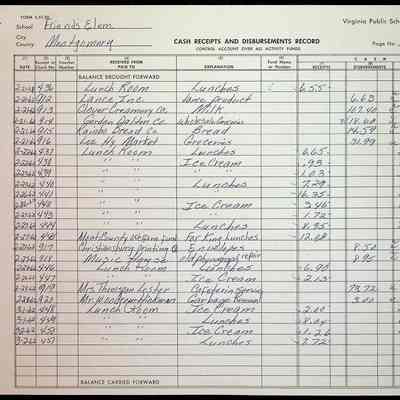 FORM
School Friends Elem. Virginia Public Sc
City
County Montgomery CASH RECEIPTS AND DISBURSEMENTS RECORD
CONTROL ACCOUNT OVER ALL ACTIVITY FUNDS Page No.
DATE RECEIVED FROM PAID TO EXPLANATION Fund Name or Number CASH RECEIPTS DISBURSEMENTS
BALANCE BROUGHT FORWARD
436 Lunch Room Lunches 6.55
912 Lance Inc. Lance Product 6.63
913 Clover Creamery Co. Milk 107.40
914 Gordon Dalton Co. Wholesale Groceries 118.60
915 Rainbo Bread Co. Bread 14.59
916 Lee Hy Market Groceries 31.99
437 Lunch Room Lunches 6.65
438 " " Ice Cream .93
439 " " " 1.03
440 " " Lunches 7.29
441 " " " 16.35
442 " " Ice Cream 3.46
443 " " " 1.72
444 " " Lunches 8.95
445 Mont County Welfare Fund For King Lunches 12.68
917 Christiansburg Printing Co Envelopes 8.50
918 Music House old phonograph repair 8.95
446 Lunch Room Lunches 6.90
447 " " Ice Cream 2.13
919 Mrs. Thompson Lester Cafeteria Service 73.72
920 Mr. Woodrow Hickman Garbage Removal 3.00
448 Lunch Room Ice Cream 2.09
449 " " Lunches 8.04
450 " " Ice Cream 1.26
451 " " Lunches 7.72
BALANCE CARRIED FORWARD